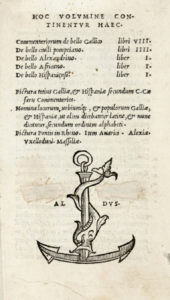 HOC VOLVMINE CON
TINENTVR HAEC.
Commentariorum de bello Gallico libri VIII.
De bello ciuili pompeiano. libri III.
De bello Alexandrino. liber I.
De bello Africano. liber I.
De bello Hispaniensi. liber I.
Pictura totius Galliæ, & Hispaniæ secundum C. Cæ
saris Commentarios.
Nomina locorum, urbiumq;, & populorum Galliæ,
& Hispaniæ, ut olim dicebantur latine, & nunc
dicantur, secundum ordinem alphabeti.
Pictura Pontis in Rheno. Item Auarici. Alexiæ.
Vxelloduni. Massiliæ.
AL DVS